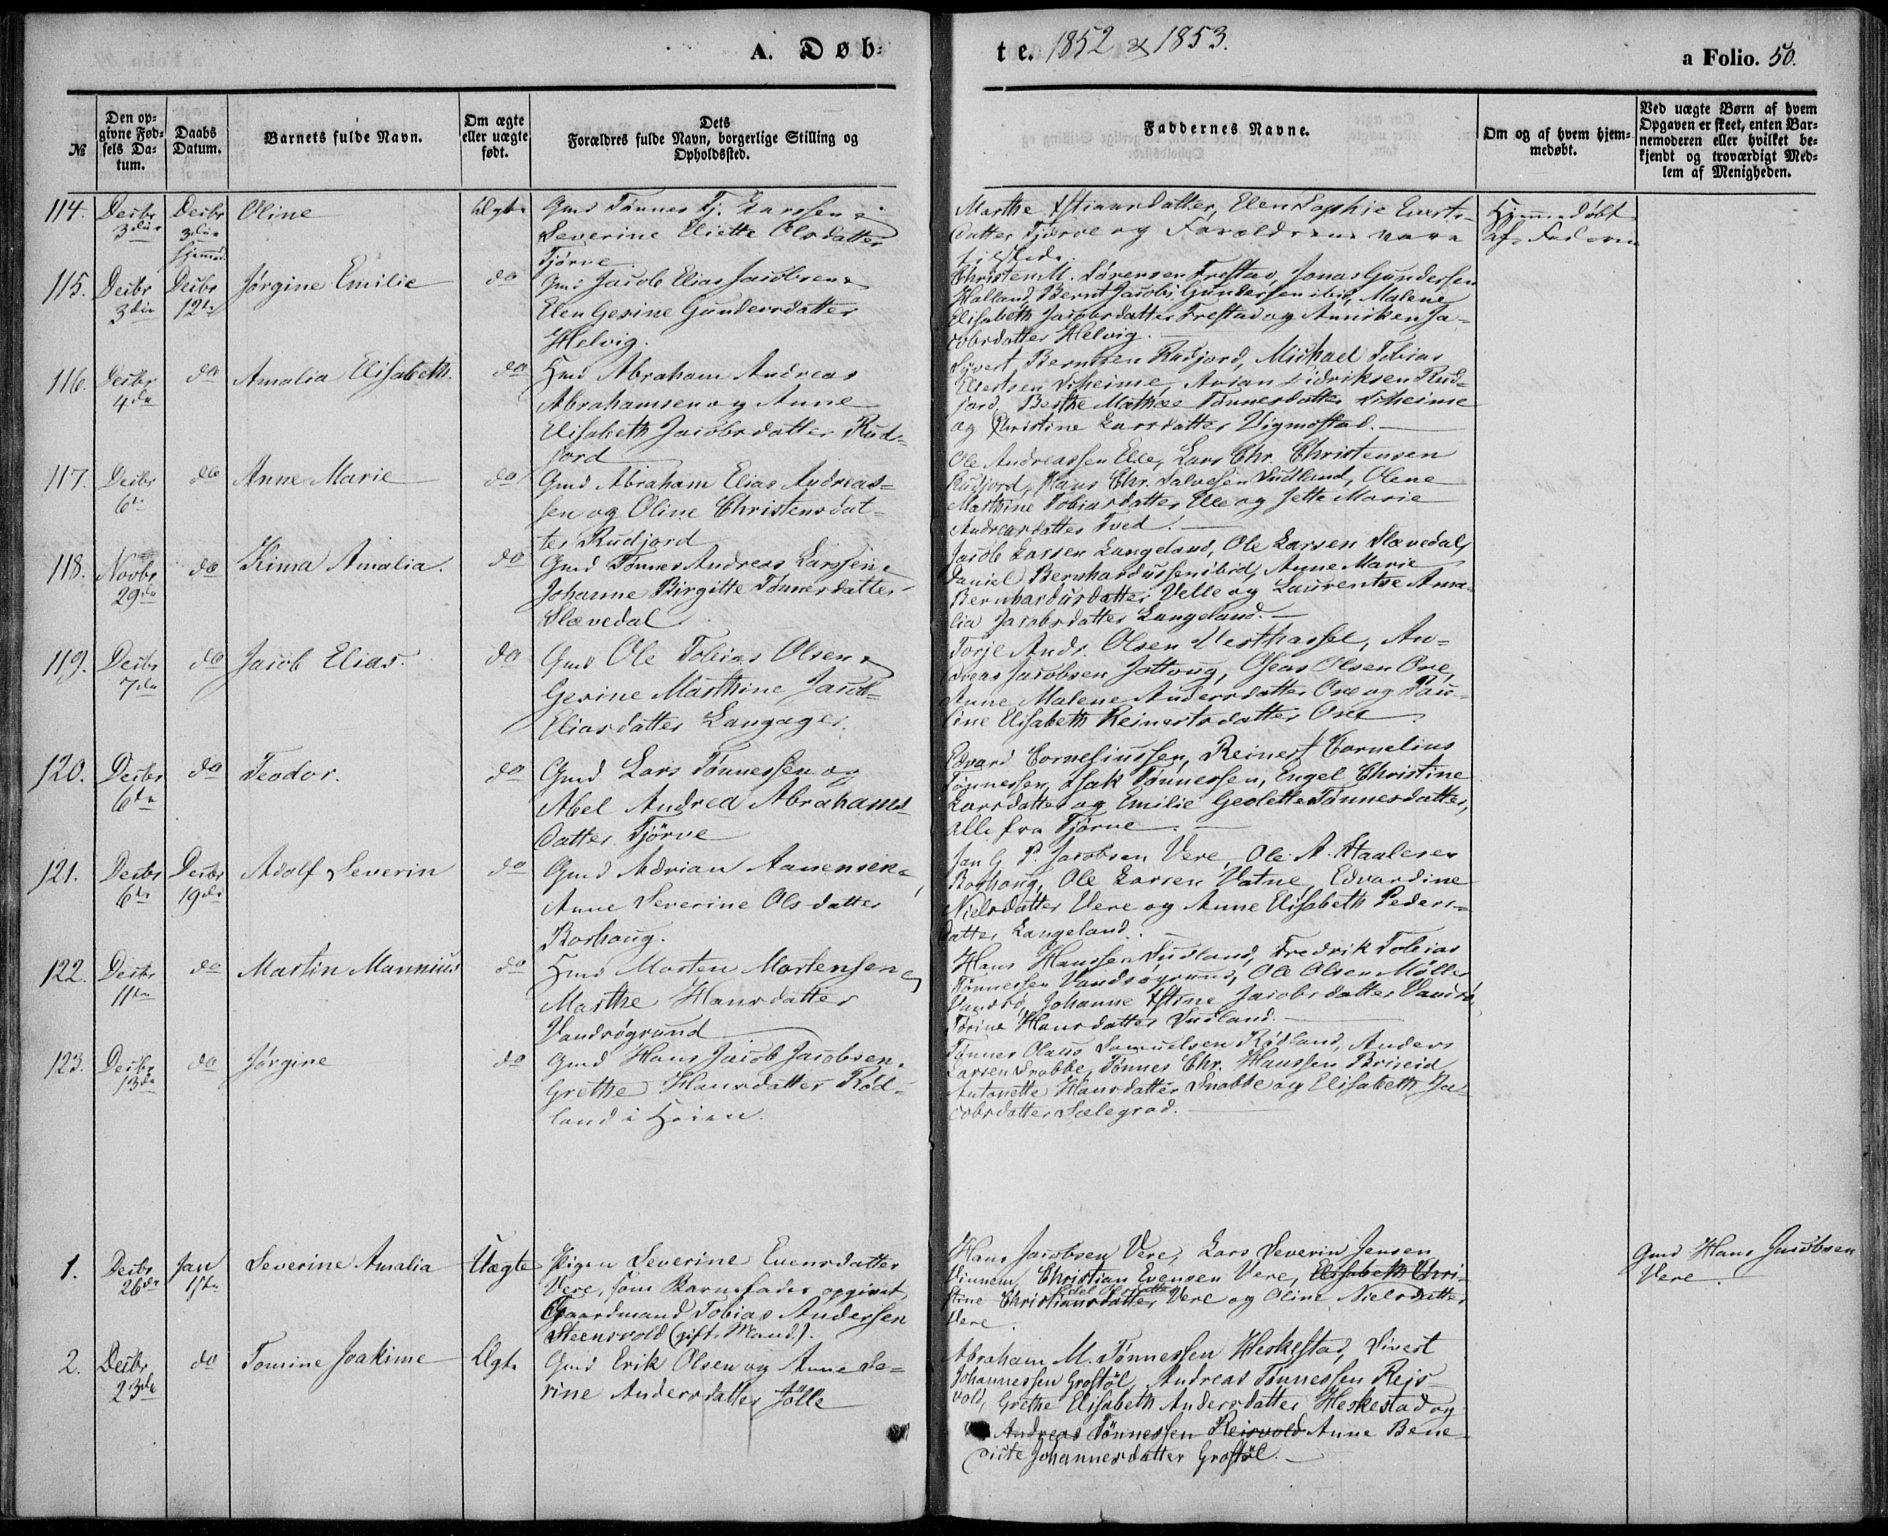 A. Døb-
te. 1852 & 1853.
a Folio. 50.
№
Den op-
givne Fød-
sels Da-
tum.
Daabs
Datum.
Barnets fulde Navn.
Om ægte
eller uægte
født.
Dets
Forældres fulde Navn, borgerlige Stilling og
Opholdssted.
Faddernes Navne.
Om og af hvem hjem-
medøbt.
Ved uægte Børn af hvem
Opgaven er skeet, enten Bar-
nemoderen eller hvilket be-
kjendt og troværdigt Med-
lem af Menigheden.
114. Decbr 3die Decbr 3die hjemmed. Oline Ægte
Gmd Tønnes Tj. Larssen &
Severine Eliette Olsdatter
Tjørve.
Marthe Stiansdatter, Elen Sophie Everts-
datter Tjørve og Forældrene vare
tilstede.
Hjemmedøbt
af Faderen
115. Decbr 3die Decbr 12te Jørgine Emilie do
Gmd Jacob Elias Jacobsen &
Elen Gesine Gundersdatter
Helvig.
Christen M. Sørensen Frestad, Jonas Gundersen
Halland, Bernt Jacobs Gundersen ibid, Malene
Elisabeth Jacobsdatter Frestad og Anniken Ja-
cobsdatter Helvig.
116. Decbr 4de do Amalia Elisabeth. do
Hmd Abraham Andreas
Abrahamsen og Anne
Elisabeth Jacobsdatter Rud-
jord
Sivert Berntsen Rudjord, Michael Tobias
Elertsen Skeime, Arian Didriksen Rud-
jord, Berthe Mathea Tønnesdatter Skeime
og Christine Larsdatter Vigmostad.
117. Decbr 6te do Anne Marie do
Gmd Abraham Elias Andreas-
sen og Oline Christensdat-
ter Rudjord
Ole Andreassen Elle, Lars Chr. Christensen
Rudjord, Hans Chr. Salvesen Sudland, Olene
Marthine Tobiasdatter Elle og Jette Marie
Andreasdatter Tved.
118. Novbr 29de do Kima Amalia. do
Gmd Tønnes Andreas Larssen &
Johanne Birgitte Tønnesdatter
Slævedal
Jacob Larsen Langeland, Ole Larsen Slævedal,
Daniel Bernhardussen ibid, Anne Marie
Bernhardusdatter Velle og Laurentse Ama-
lia Jacobsdatter Langeland.
119. Decbr 7de do Jacob Elias. do
Gmd Ole Tobias Olsen &
Gesine Marthine Jacob-
Eliasdatter Langager.
Torje Andr. Olsen Vesthassel, An-
dreas Jacobsen Jøllong, Oseas Olsen Ore,
Anne Malene Andersdatter Ore og Pau-
line Elisabeth Reinertsdatter Ore
120. Decbr 6te do Teodor. do
Gmd Lars Tønnessen og
Abel Andrea Abrahams-
datter Tjørve
Edvard Corneliussen, Reinert Cornelius
Tønnessen, Isak Tønnessen, Engel Christine
Larsdatter og Emilie Geolette Tønnesdatter,
alle fra Tjørve.
121. Decbr 6te Decbr 19de Adolf Severin do
Gmd Adrian Aanensen &
Anne Severine Olsdatter
Borhaug.
Jan G. P. Jacobsen Vere, Ole A. Staalesen
Borhaug, Ole Larsen Vatne, Edvardine
Nielsdatter Vere og Anne Elisabeth Peders-
datter Langeland.
122. Decbr 11te do Martin Mannius do
Hmd Morten Mortensen og
Marthe Hansdatter
Vandsøgrund
Hans Hanssen Sudland, Fredrik Tobias
Tønnessen Vandsøgrund, Ole Olsen Møller
Vandsø, Johanne Stine Jacobsdatter Vandsø,
Tørine Hansdatter Sudland.
123. Decbr 13de do Jørgine do
Gmd Hans Jacob Jacobsen &
Grethe Hansdatter Rød-
land i Heien.
Tønnes Olaus Samuelsen Rødland, Anders
Larsen Snobbe, Tønnes Chr. Hanssen Briseid
Antonette Hansdatter Snobbe og Elisabeth Ja-
cobsdatter Sælegrad.
1. Decbr 26de Jan 1ste Severine Amalia Uægte
Pigen Severine Evensdatter
Vere, som Barnefader opgivet
Gaardmand Tobias Andersen
Steensvold (gift Mand).
Hans Jacobsen Vere, Lars Severin Jensen
Vinnem, Christian Evensen Vere, Elisabeth Chri-
stine Christiansdatter Vere og Oline Nielsdatter
Vere.
Gmd Hans Jacobsen
Vere.
2. Decbr 23de do Tomine Joakime Ægte
Gmd Erik Olsen og Anne Se-
rine Andersdatter Jølle
Abraham M. Tønnessen Heskestad, Sivert
Johannessen Grostøl, Andreas Tønnessen Reis-
vold, Grethe Elisabeth Andersdatter Heskestad og
Andreas Tønnessen Reisvold Anne Bene-
dicte Johannesdatter Grostøl.